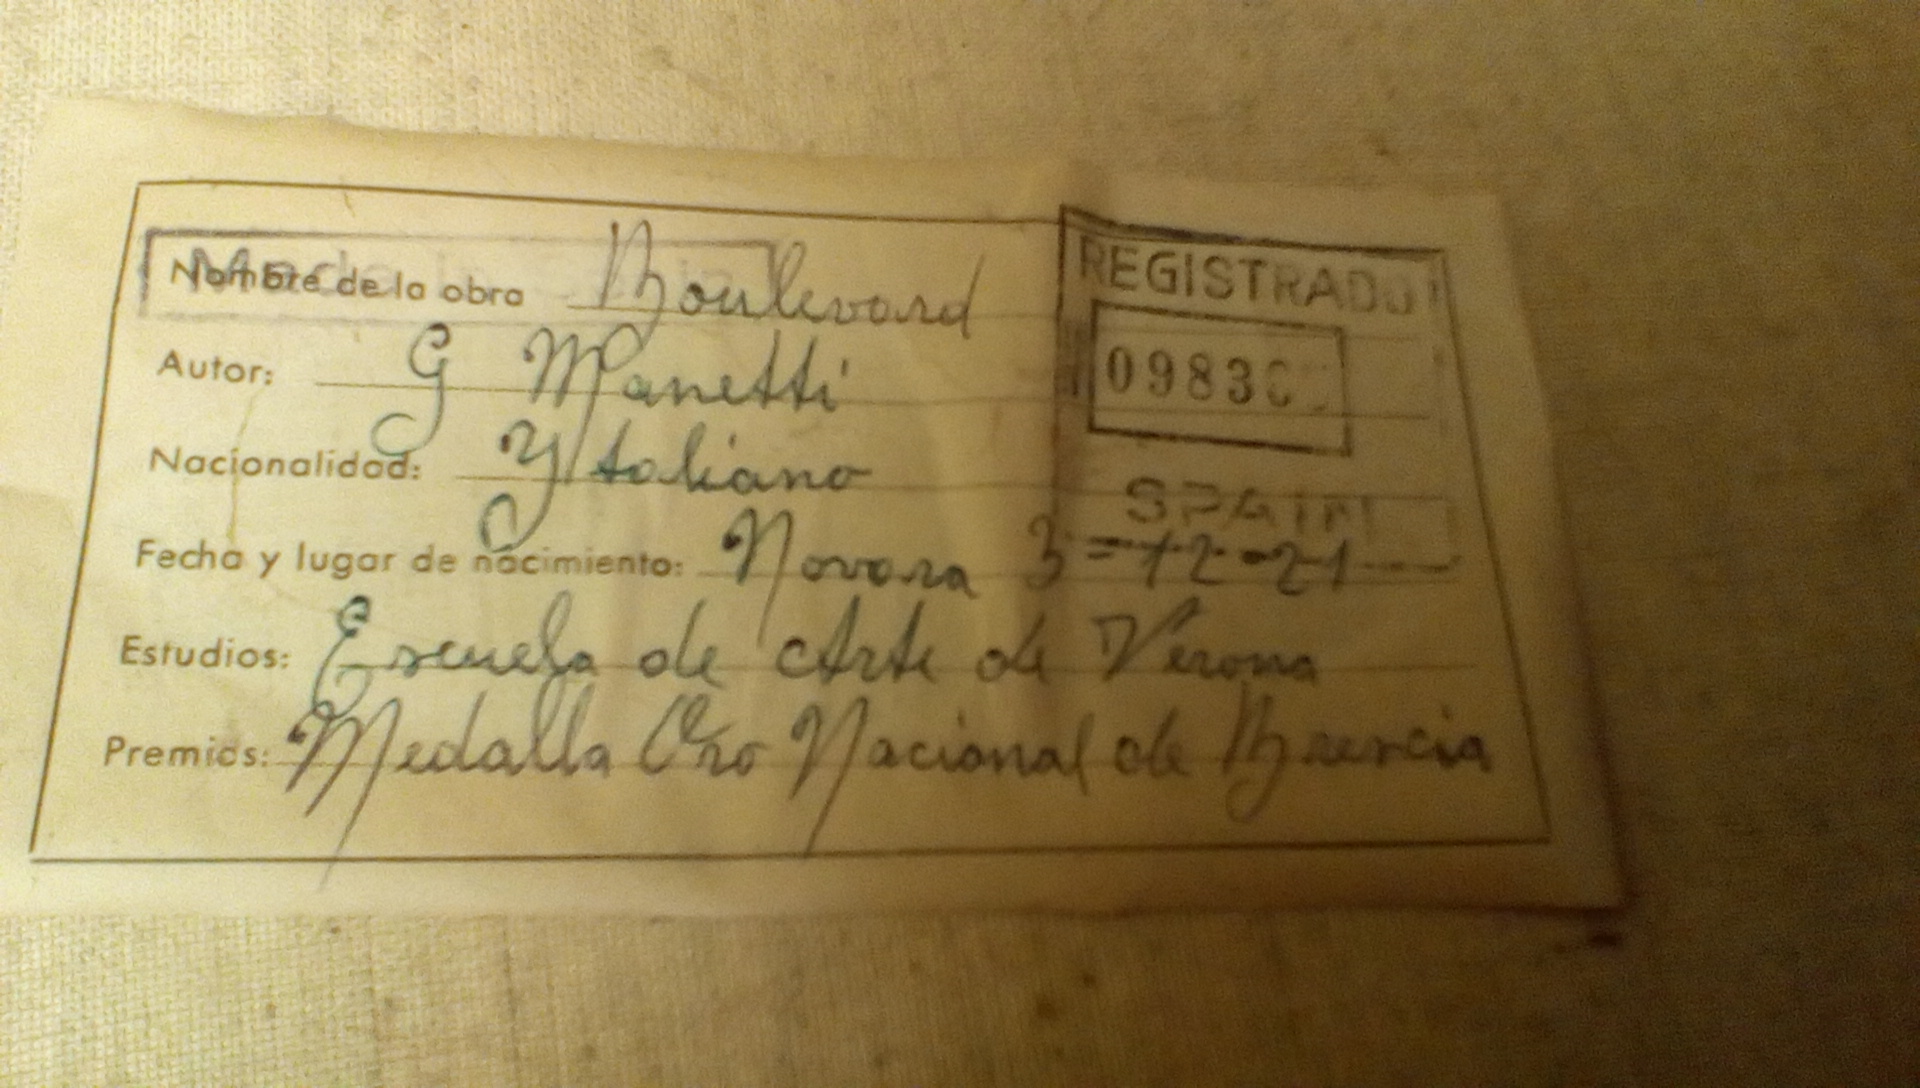 Nombre de la obra Boulevard
REGISTRADO
Autor: G Manetti
0983
Nacionalidad: Ytaliano
SPAIN
Fecha y lugar de nacimiento: Novara 3=12-21
Estudios: Escuela de Arte de Verona
Premios: Medalla Oro Nacional de Brescia